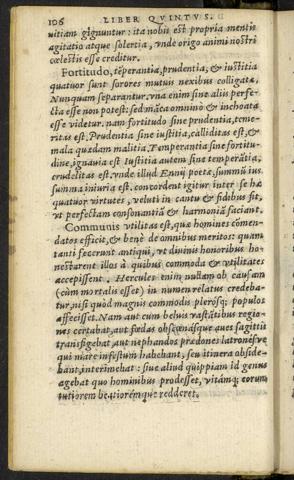 106 LIBER QVINTVS.
uitiam gignuntur: ita nobis est propria mentis
agitatio atque solertia, vnde origo animi nostri
cœlestis esse creditur.
Fortitudo, tẽperantia, prudentia, & iustitia
quatuor sunt sorores mutuis nexibus colligatæ.
Nunquam separantur. vna enim sine alijs perfe-
cta esse non potest: sed mãca omnino & inchoata
esse videtur. nam fortitudo sine prudentia, teme-
ritas est. Prudentia sine iustitia, calliditas est, &
mala quædam malitia. Temperantia sine fortitu-
dine, ignauia est. Iustitia autem sine temperãtia,
crudelitas est. vnde illud Ennij poetæ, summũ ius
summa iniuria est. concordent igitur inter se hæ
quatuor virtutes, veluti in cantu & fidibus fit,
vt perfectam consonantiã & harmoniã faciant.
Communis vtilitas est, quæ homines cõmen-
datos efficit, & benè de omnibus meritos: quam
tanti fecerunt antiqui, vt diuinis honoribus ho-
nestarent illos à quibus commoda & vtilitates
accepissent. Hercules enim nullam ob causam
(cùm mortalis esset) in numen relatus credeba-
tur, nisi quòd magnis commodis plerosq; populos
affecisset. Nam aut cum beluis vastãtibus regio-
nes certabat, aut fœdas obscœnasque aues sagittis
transfigebat, aut nephandos prædones latronesve
qui mare infestum habebant, seu itinera obside-
bant, interimebat: siue aliud quippiam id genus
agebat quo hominibus prodesset, vitámq; eorum
tutiorem beatiorémque redderet.